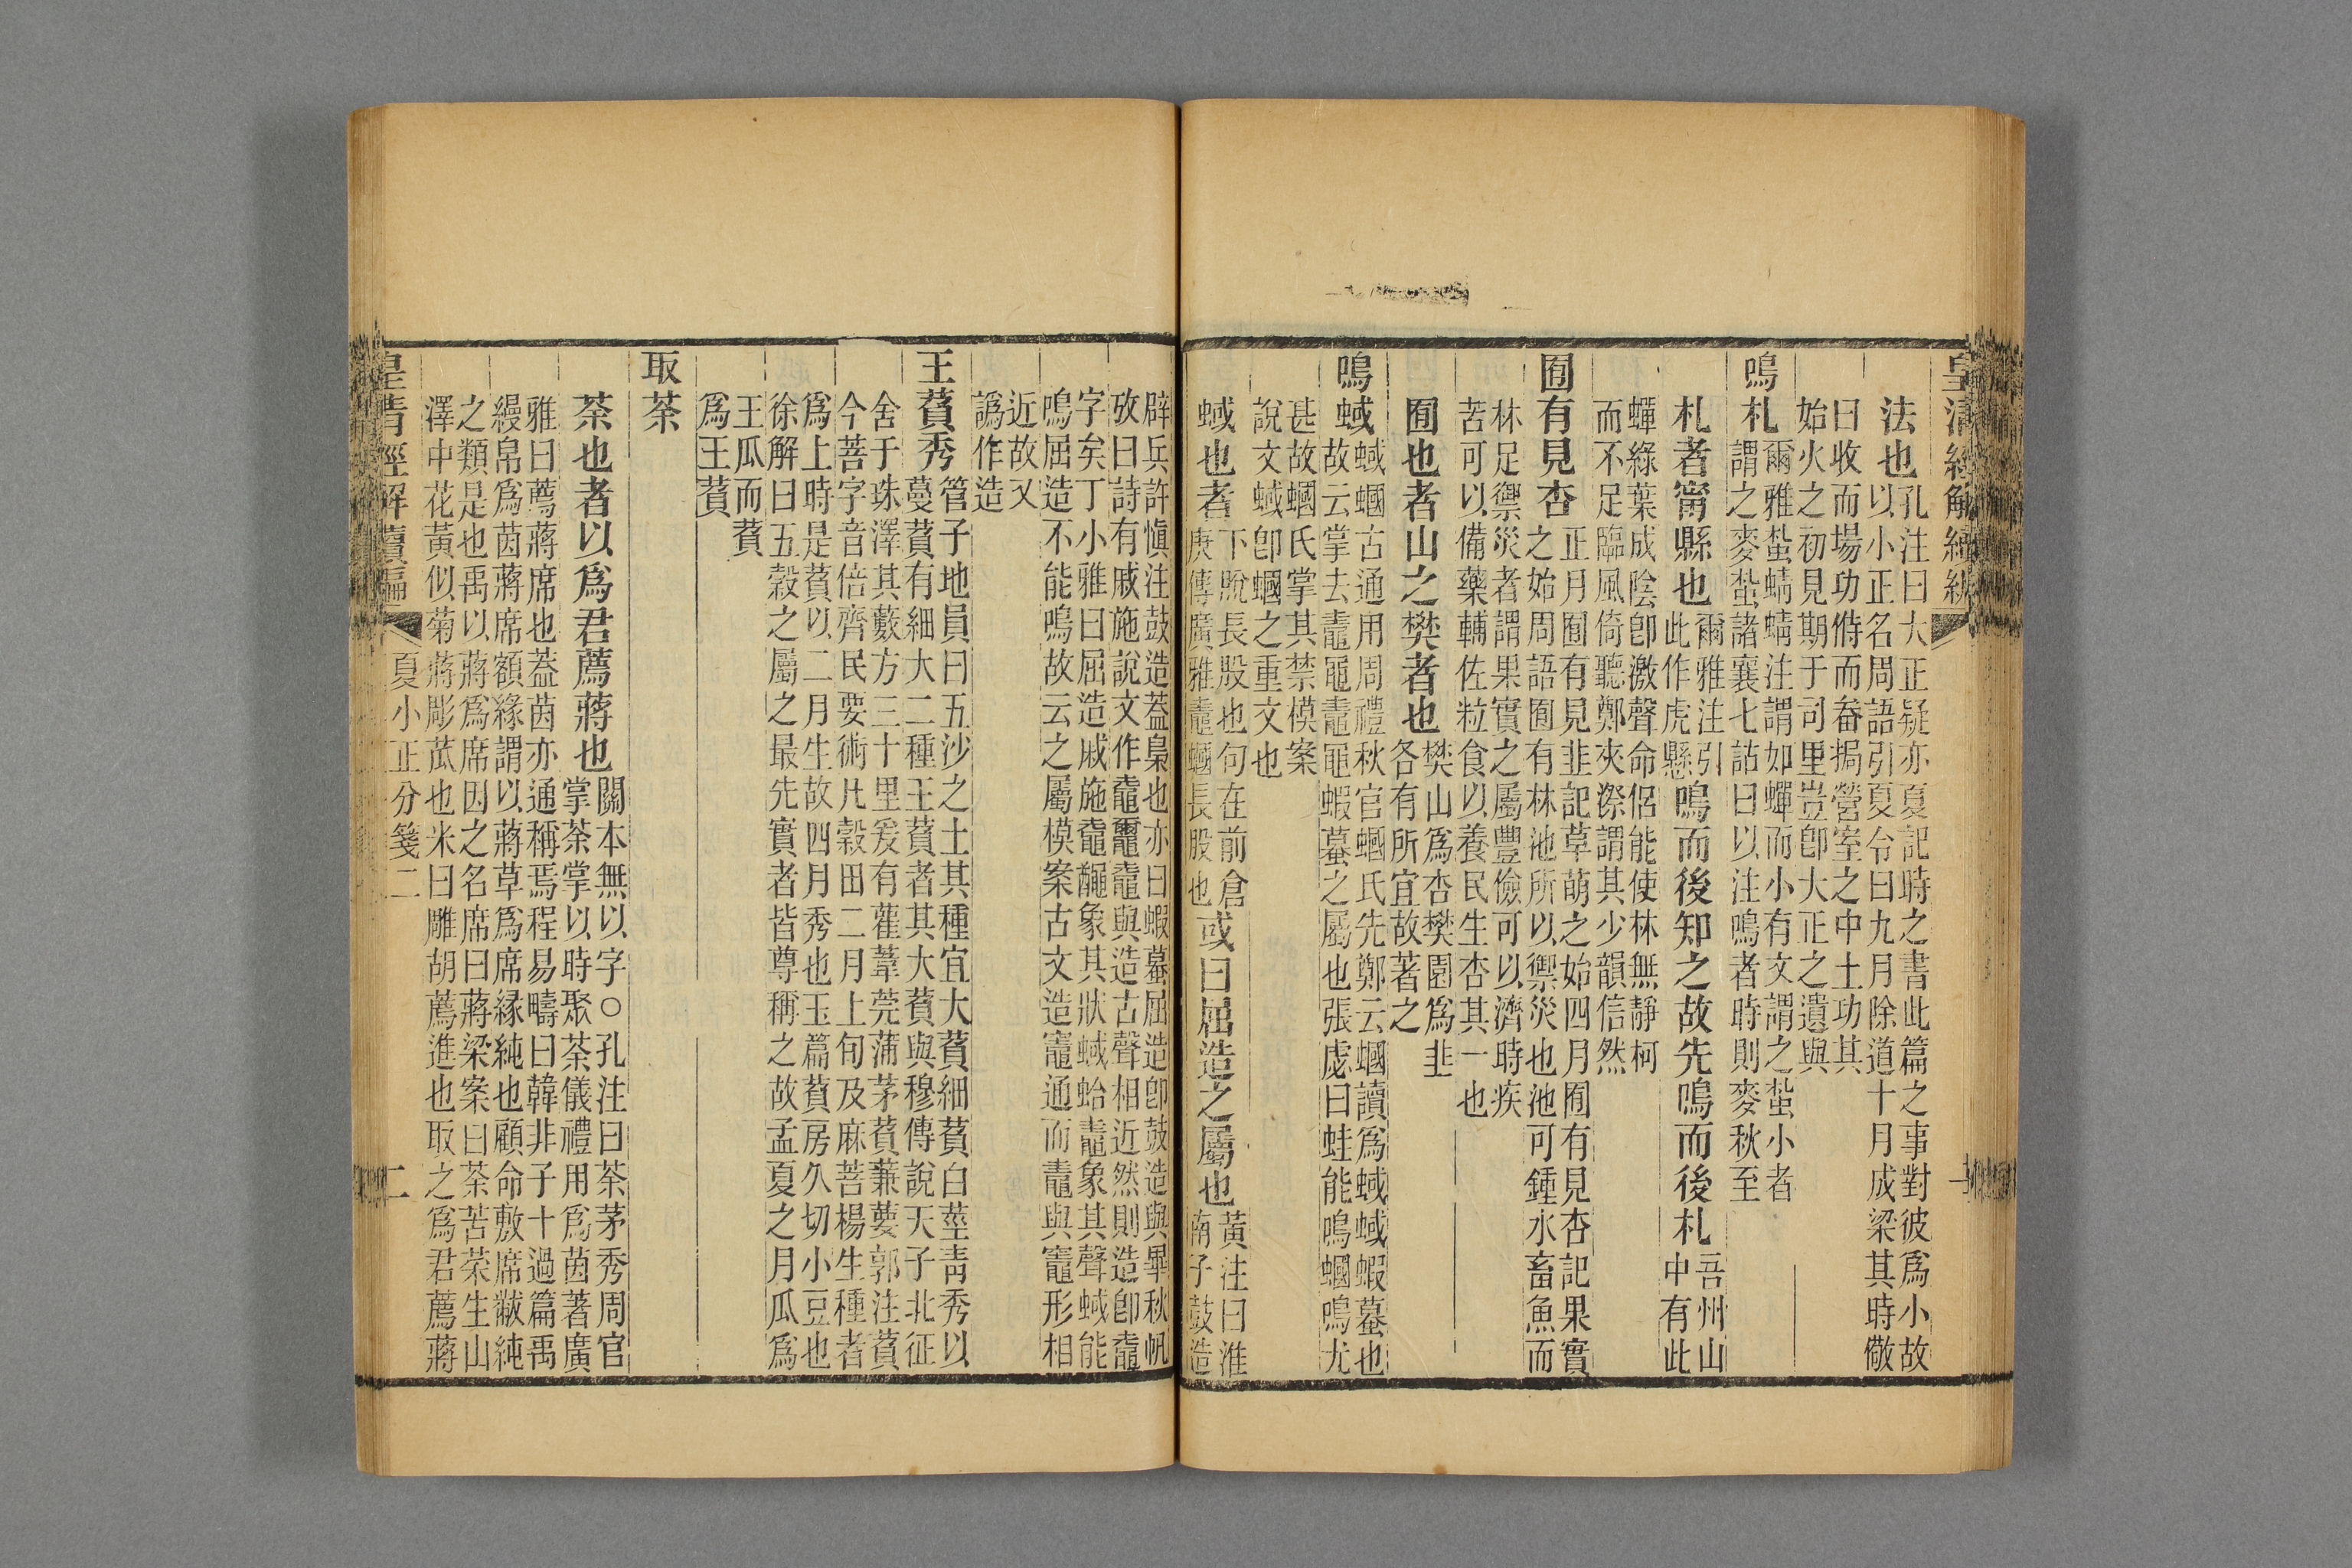 皇清經解續編
法也孔注曰大正疑亦夏記時之書此篇之事對彼爲小故
以小正名周語引夏令曰九月除道十月成梁其時儆
曰收而場功偫而畚挶營室之中土功其
始火之初見期于司里豈卽大正之遺與
鳴札爾雅蚻蜻蜻注謂如蟬而小有文謂之蚻小者
謂之麥蚻諸襄七詁曰以注鳴者時則麥秋至
札者甯縣也爾雅注引此作虎懸鳴而後知之故先鳴而後札吾州山中有此
蟬綠葉成陰卽激聲命侶能使林無靜柯
而不足臨風倚聽鄭夾漈謂其少韻信然
囿有見杏正月囿有見韭記草萌之始四月囿有見杏記果實
之始周語囿有林池所以禦災也池可鍾水畜魚而
林足禦災者謂果實之屬豐儉可以濟時疾
苦可以備藥輔佐粒食以養民生杏其一也
囿也者山之樊者也樊山爲杏樊園爲韭各有所宜故著之
鳴蜮蜮蟈古通用周禮秋官蟈氏先鄭云蟈讀爲蜮蜮蝦蟇也
故云掌去鼃黽鼃黽蝦蟇之屬也張慮曰蛙能鳴蟈鳴尤
甚故蟈氏掌其禁模案
說文蜮卽蟈之重文也
蜮也者下脫長股也句在前倉庚傳廣雅鼃蟈長股也或曰屈造之屬也黃注曰淮南子鼓造
辟兵許愼注鼓造蓋梟也亦曰蝦蟇屈造卽鼓造與畢秋帆
攷曰詩有戚施說文作鼀鼀與造古聲相近然則造卽鼀
字矣丁小雅曰屈造戚施鼀象其狀蜮蛤鼃象其聲蜮能
鳴屈造不能鳴故云之屬模案古文造竈通而鼃與竈形相
近故又
譌作造
王萯秀管子地員曰五沙之土其種宜大萯細萯白莖靑秀以
蔓萯有細大二種王萯者其大萯與穆傳說天子北征
舍于珠澤其藪方三十里爰有雚葦莞蒲茅萯蒹葽郭注萯
今菩字音倍齊民要術凡穀田二月上旬及麻菩楊生種者
爲上時是萯以二月生故四月秀也玉篇萯房久切小豆也
徐解曰五穀之屬之最先實者皆尊稱之故孟夏之月瓜爲
王瓜而萯
爲王萯
取荼
荼也者以爲君薦蔣也關本無以字○孔注曰荼茅秀周官
掌荼掌以時聚荼儀禮用爲茵著廣
雅曰薦蔣席也蓋茵亦通稱焉程易疇曰韓非子十過篇禹
縵帛爲茵蔣席額緣謂以蔣草爲席緣純也顧命敷席黻純
之類是也禹以蔣爲席因之名席曰蔣梁案曰荼苦荼生山
澤中花黃似菊蔣彫苽也米曰雕胡薦進也取之爲君薦蔣
皇清經解續編
夏小正分箋二
二